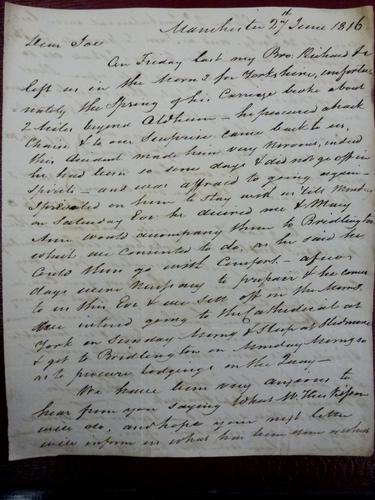 Manchester 27th June 1816
Dear Joe
On Friday last my Bro. Richard &c
left us in the Morng for Yorkshire, unfortu
nately the Spring of his Carriage broke about
2 Miles beyond Oldham — he procured a hack
Chaise & to our Surprise came back to us,
this accident made him very nervous, indeed
he had been so some days & did not go off in
Spirits — and was afraid to going again —
on him to stay with us till Monday
on Saturday Eve he desired me & Mary
Ann would accompany them to Bridlington
which we consented to do, as he said he
could then go with Comfort — a few
days were necessary to prepare & he comes
to us this Eve & we sett off in the Morng.
We intend going to the Cathedral at
York on Sunday Morng & Sleep at
& get to Bridlington on Monday Morng so
as to procure Lodgings on the Quay —
We have been very anxious to
hear from you saying What Mr Huskisson
will do, and hope your next letter
will inform us what has been done